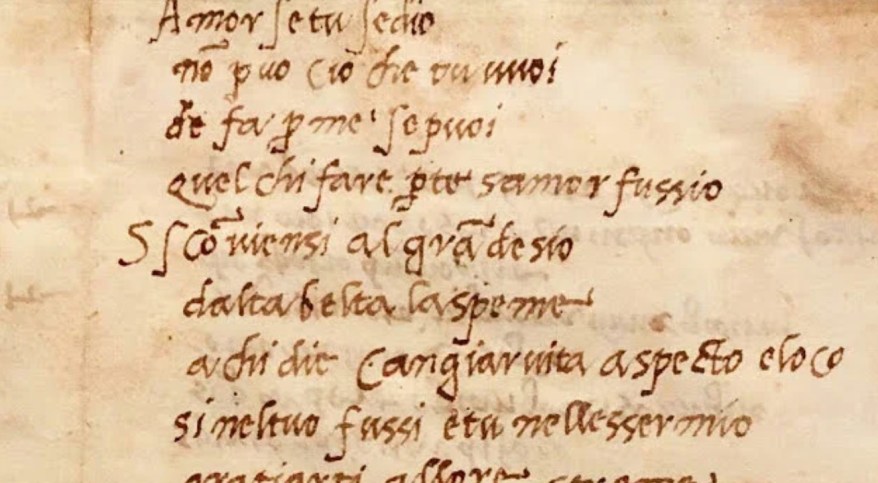 Amor se tu sedio
nō puo cio che tu vuoi
de fa ꝑ me se puoi
quel chi fare ꝑte samor fussio
S scōuiensi al grā desio
dalta belta la speme
a chi die cangiar uita aspecto eloco
si nel tuo fussi e tu nellesser mio